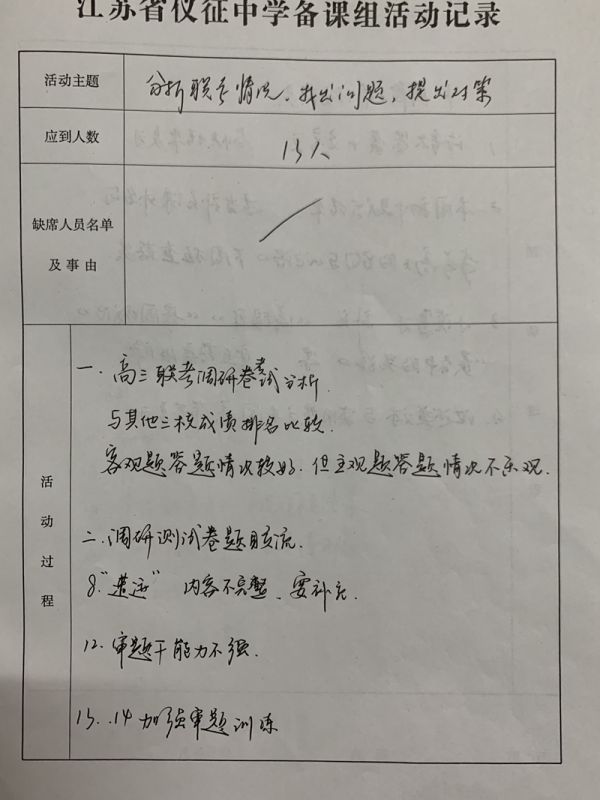 江苏省仪征中学备课组活动记录
活动主题
分析联考情况、找出问题，提出对策
应到人数
13人
缺席人员名单
及事由
活动过程
一、高三联考调研卷考试分析.
与其他三校成绩排名比较.
客观题答题情况较好.但主观题答题情况不乐观.
二、调研测试卷题目交流.
8." " 内容不完整、要补充.
12.审题干能力不强.
13.、14加强审题训练